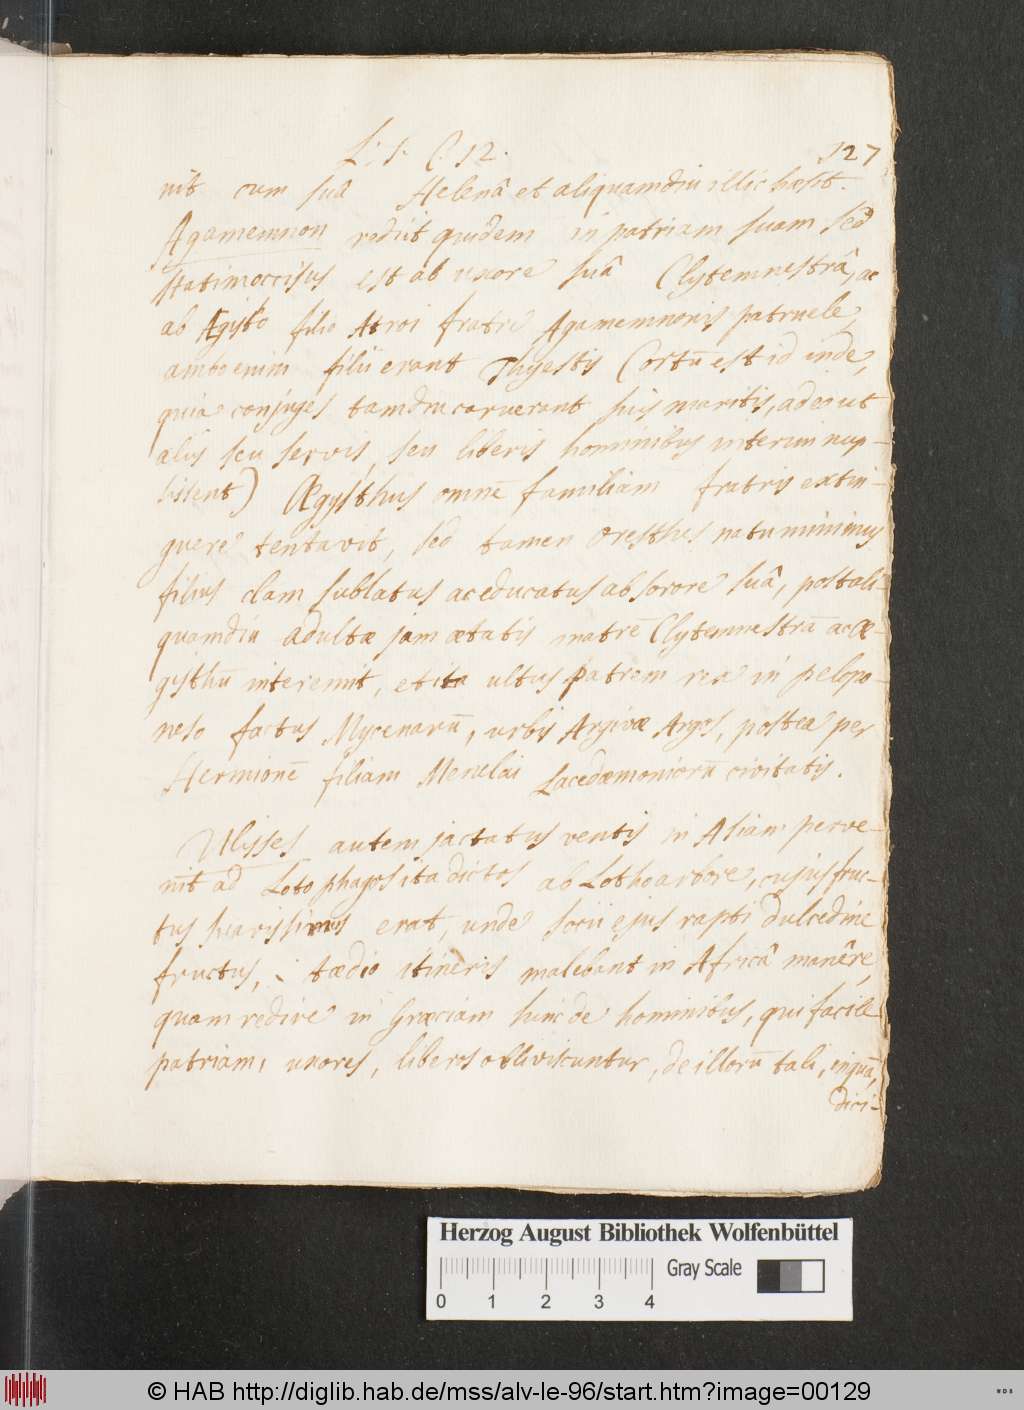 L: 1. C. 12. 127
nit cum suâ Helenâ et aliquamdiu illic hæsit.
Agamemnon rediit quidem in patriam suam sed
statim occisus est ab uxore suâ Clytemnestrâ, ac
ab Ægisto filio Atrei fratre Agamemnonis patruele,
ambo enim filii erant Thyestis Cortū est id inde,
quia conjuges tamdiu caruerant suis maritis, adeo ut
aliis seu servis, seu liberis hominibus interim nup-
sissent) Ægysthus omnē familiam fratris extin-
guere tentavit, sed tamen Oresthes natu minimus
filius clam sublatus ac educatus ab sorore suâ, post ali-
quamdiu adultæ jam ætatis matrē Clytemnestrā ac Æ-
gysthū interemit, et ita ultus patrem rex in pelopo-
neso factus Mycenarū, urbis Argivæ Argos, postea per
Hermionē filiam Menelai Lacedæmoniorū civitatis.
Ulisses autem jactatus ventis in Asiam perve-
nit ad Lotophagos ita dictos ab Lotho arbore, cujus fruc-
tus suavissimus erat, unde socii ejus rapti dulcedine
fructus, tædio itineris malebant in Africâ manêre,
quam redire in Græciam hinc de hominibus, qui facile
patriam, uxores, liberos obliviscuntur, de illorū tali, inquā,
dici-
Herzog August Bibliothek Wolfenbüttel
Gray Scale
0 1 2 3 4
© HAB http://diglib.hab.de/mss/alv-le-96/start.htm?image=00129